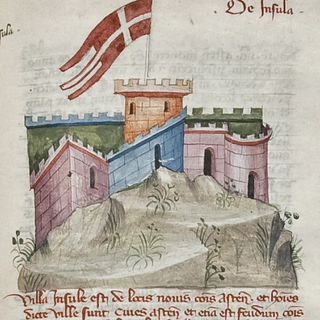 De Insula .
sula .
Villa Insule est de locis nouis cois asten et hoies
dicte ville sunt Ciues asten et etia est feudum cois